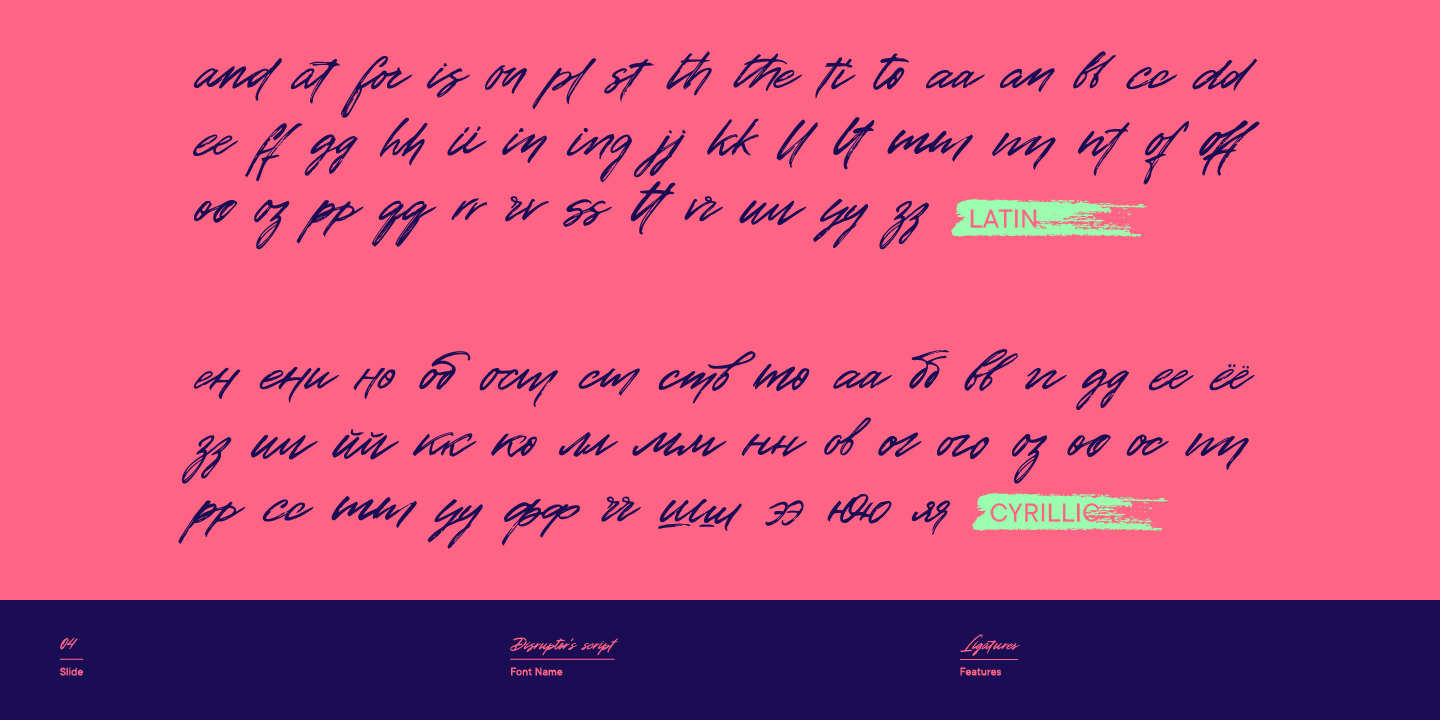 and at for is on pl st th the ti to aa an bb cc dd
ee ff gg hh ii in ing jj kk ll lt mm nn nt of off
oo oz pp qq rr rv ss tt vr uu yy zz LATIN
ен ени но об осп сп ств то аа бб вв гг дд ее ёё
зз ии йй кк ко лл мм нн ов ог ого оз оо ос пп
рр сс тт уу фф чч шш ээ юю яя CYRILLIC
04
Slide
Disruptor's script
Font Name
Ligatures
Features